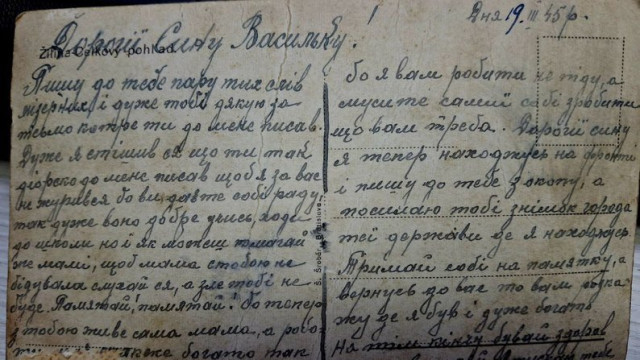 Дорогії Сину Васильку!
Дня 19 III 45 р.
Žilina-Celkový pohľad
Пишу до тебе пару тих слів
мизерних, і дуже тобі дякую за
письмо котре ти до мене писав.
Дуже я стішив ся що ти так
до мене писав щоб я за вас
не журився бо ви дасте собі раду,
так дуже воно добре учись, ходи
до школи но і як можеш помагай
же мамі, щоб мама з тобою не
бідувала слухай ся, а зле тобі не
буде. Памятай, памятай! бо тепер
з тобою живе сама мама, а робо-
богато так
бо я вам робити не піду, а
мусите самії собі зробити
що вам треба. Дорогії сину
я тепер находжусь на фронті
і пишу до тебе з окопу, а
посилаю тобі знімок города
теї держави де я находжусь
Тримай собі на памятку, а
вернусь до вас то вам роска
жу де я був і дуже богато
На тім кінчу бувай здоров